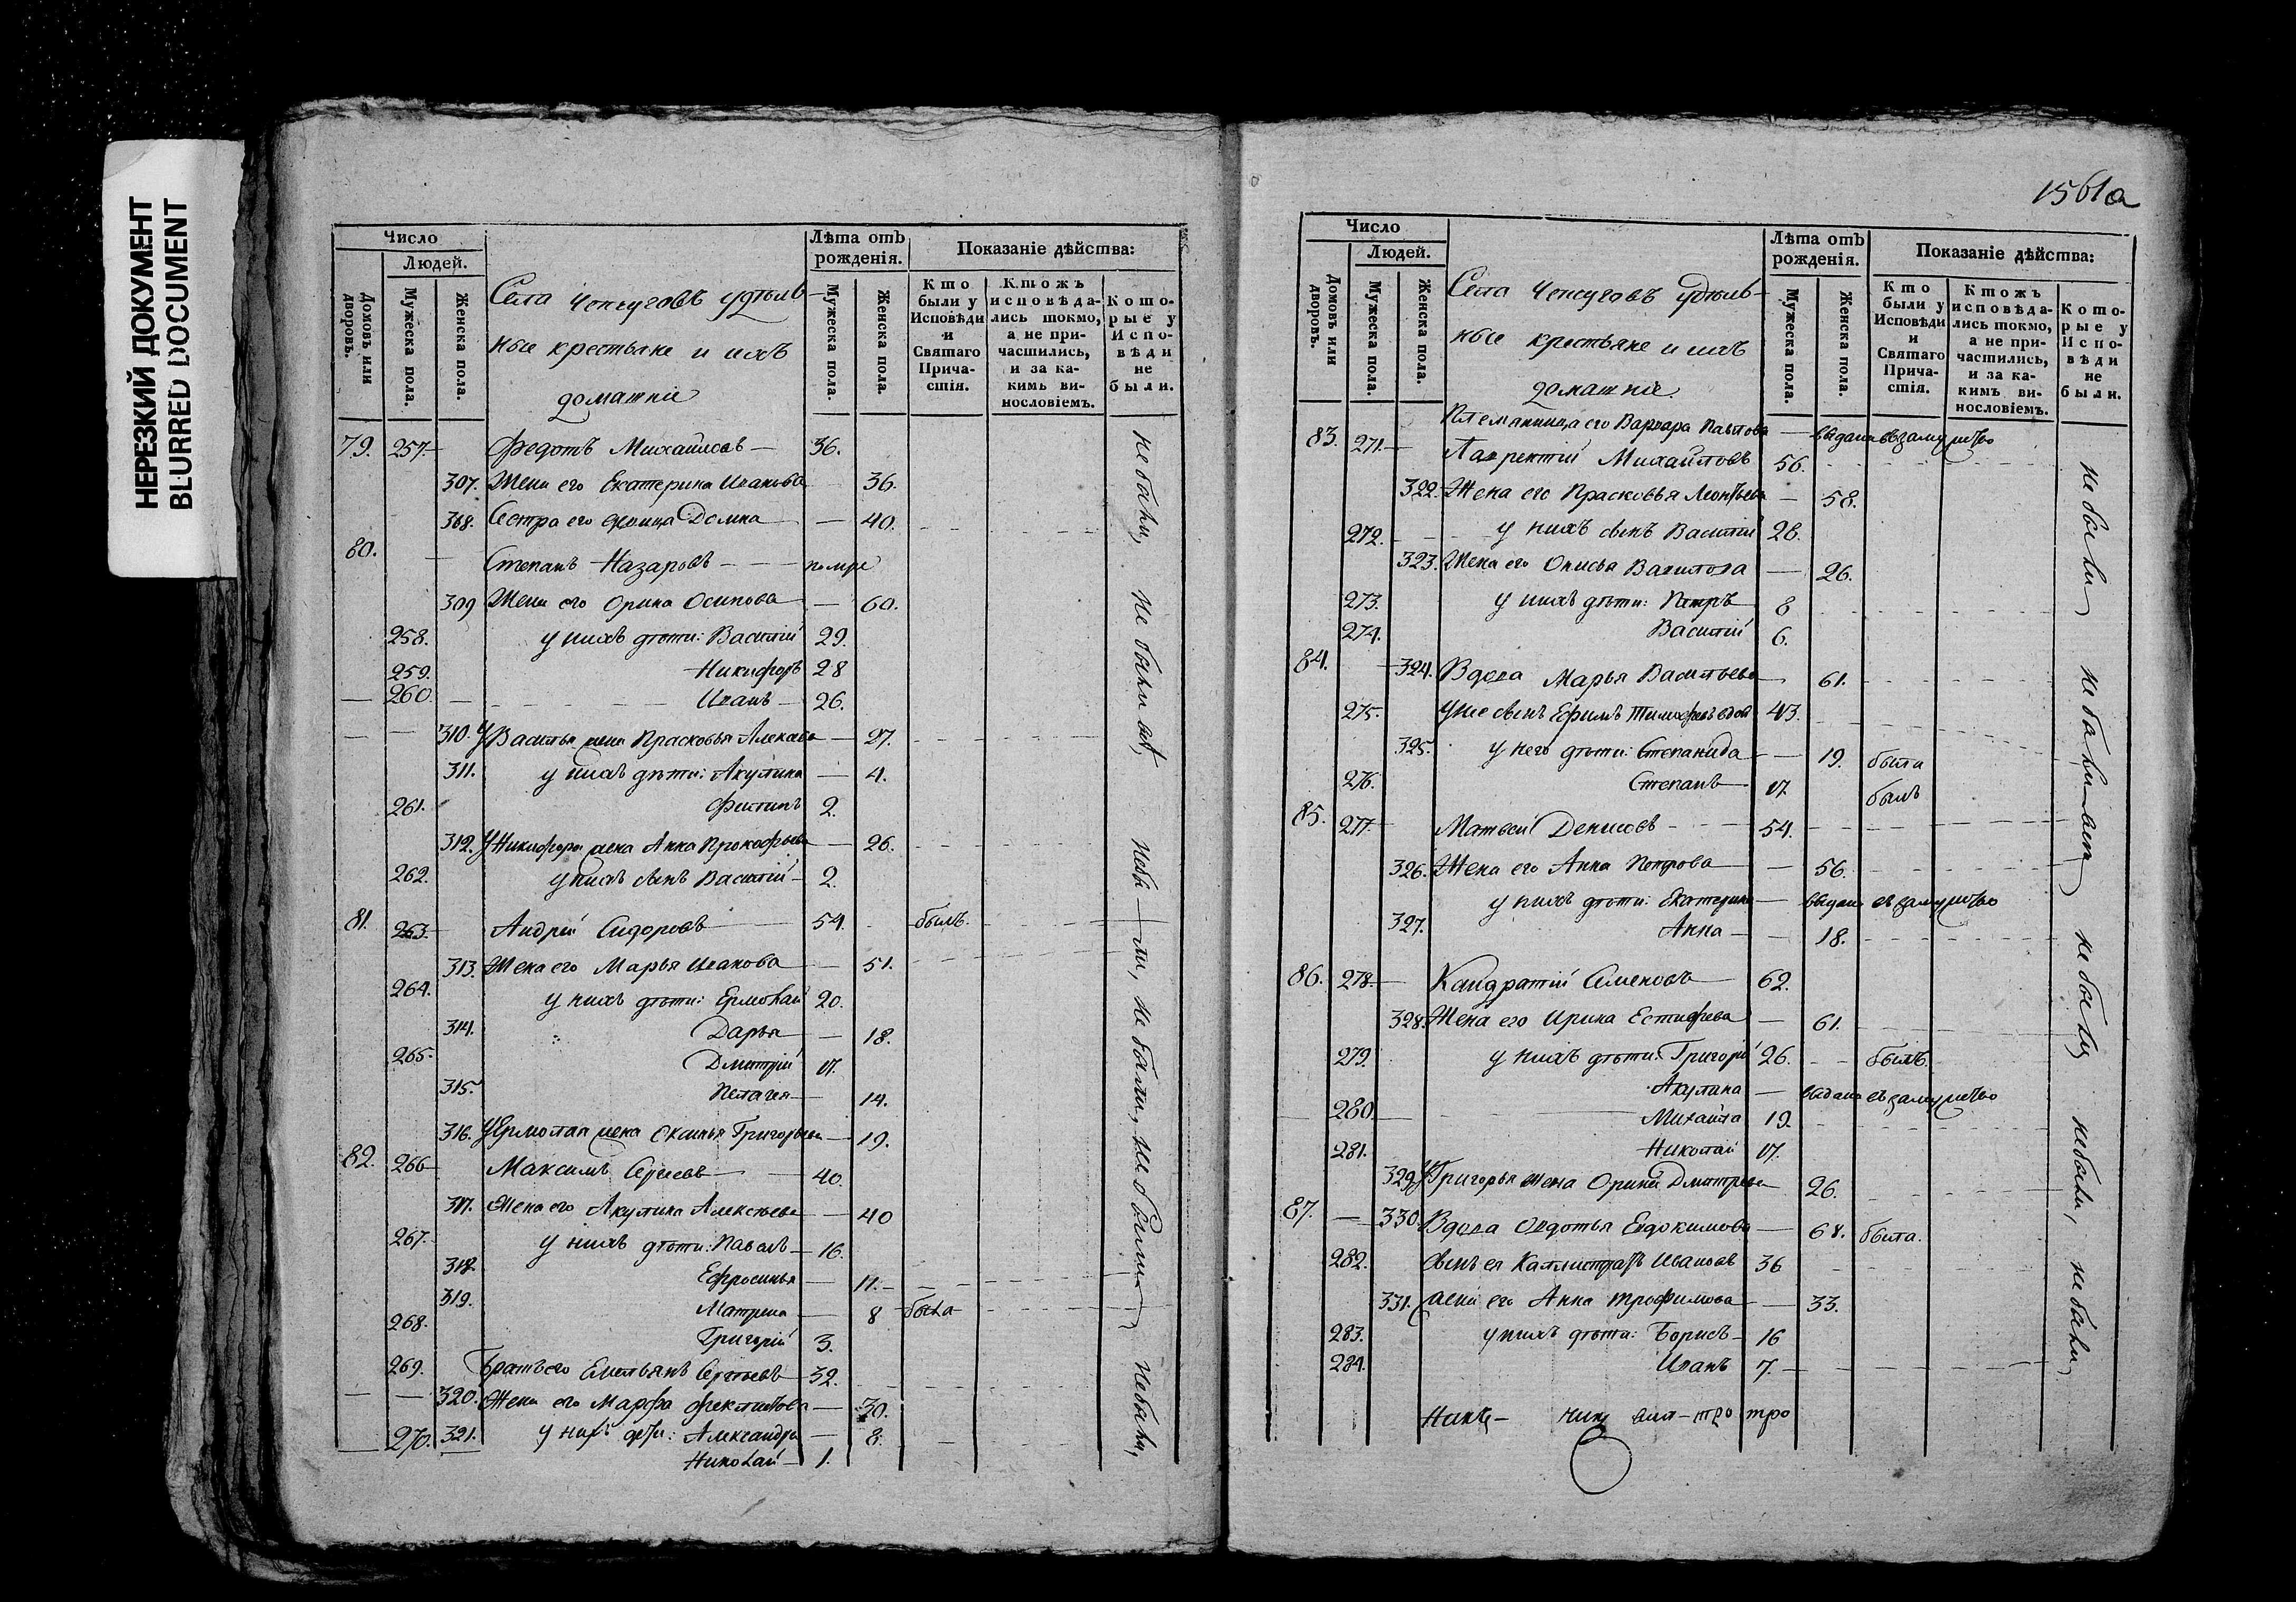 НЕРЕЗКИЙ ДОКУМЕНТ
BLURRED DOCUMENT
Число
Людей.
Домовъ или дворовъ.
Мужеска пола.
Женска пола.
Села Чепчуговъ удѣль-
ные крестьяне и ихъ
домашніе
Лѣта отъ рожденія.
Мужеска пола.
Женска пола.
Показаніе дѣйства:
Кто были у Исповѣди и Святаго Прича-стія.
Ктожъ исповѣда-лись токмо, а не при-частились, и за ка-кимъ ви-нословіемъ.
Кото-рые у Испо-вѣди не были.
79. 257. Федотъ Михайловъ 36.
307. Жена его Екатерина Иванова 36.
308. Сестра его Домна 40.
80. Степанъ Назаровъ помре
309 Жена его Орина Осипова 60.
258. у нихъ дѣти: Василій 29.
259. Никифоръ 28
260. Иванъ 26.
310. У Василья жена Прасковья 27.
311. у нихъ дѣти: Акулина 4.
261. Филипъ 2.
312. У Никифора жена Анна Прокофьева 26.
262. у нихъ сынъ Василій 2.
81. 263. Андрей Сидоровъ 54. былъ.
313. Жена его Марья Иванова 51.
264. у нихъ дѣти: Ермолай 20.
314. Дарья 18.
265. Дмитрій 17.
315. Пелагея 14.
316. У Ермолая жена Григорьева 19.
82. 266 Максимъ Сергѣевъ 40.
317. Жена его Акулина Алексѣева 40
267. у нихъ дѣти: Павелъ 16.
318. Ефросинья 11.
319. Матрена 8 была
268. Григорій 3.
269. Братъ его Емельянъ Сергѣевъ 32.
320. Жена его Марфа 30.
270. 321. у нихъ дѣти: Александра 8.
Николай 1.
не были, не были
1561а
Число
Людей.
Домовъ или дворовъ.
Мужеска пола.
Женска пола.
Села Чепчуговъ удѣль-
ные крестьяне и ихъ
домашніе.
Лѣта отъ рожденія.
Мужеска пола.
Женска пола.
Показаніе дѣйства:
Кто были у Исповѣди и Святаго Прича-стія.
Ктожъ исповѣда-лись токмо, а не при-частились, и за ка-кимъ ви-нословіемъ.
Кото-рые у Испо-вѣди не были.
Племянница его Варвара Павлова выдана въ замужство
83. 271. Лаврентій Михайловъ 56.
322. Жена его Прасковья Леонтьева 58.
272. у нихъ сынъ Василій 28.
323. Жена его Онисья 26.
273. у нихъ дѣти: Петръ 8
274. Василій 6.
84. 324. Вдова Марья Васильева 61.
275. у нее сынъ Ефимъ Тимофеевъ вдов 43.
325. у него дѣти: Степанида 19. была
276. Степанъ 17. былъ
85. 277. Матвей Денисовъ 54.
326. Жена его Анна Петрова 56.
у нихъ дѣти: Екатерина выдана въ замужство
327. Анна 18.
86. 278. Кандратій Семеновъ 62.
328. Жена его Ирина 61.
279. у нихъ дѣти: Григорій 26. былъ.
Акулина выдана въ замужство
280. Михайла 19.
281. Николай 17.
329. У Григорья жена Орина Дмитрева 26.
87. 330. Вдова Овдотья Евдокимова 68. была.
282. Сынъ ея Каллистратъ Ивановъ 36
331. жена его Анна Трофимова 33.
283. у нихъ дѣти: Борисъ 16
284. Иванъ 7.
не были не были не были не были, не были